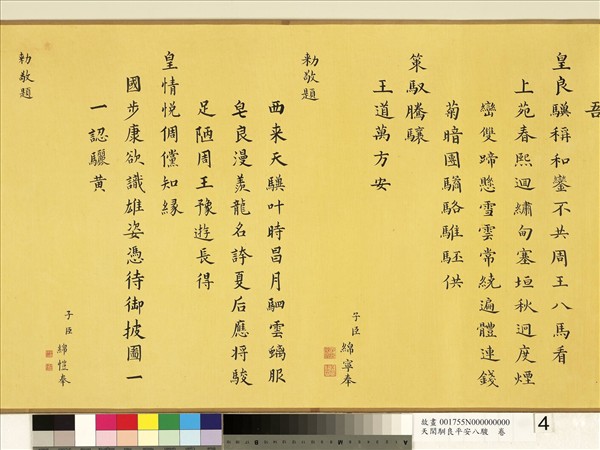 吾
皇良驥稱和鑾不共周王八馬看
上苑春熙迴繡甸塞垣秋迥度煙
巒雙蹄懸雪雲常繞遍體連錢
菊暗團驌駱騅駓供
策馭騰驤
王道萬方安
子臣綿寧奉
勅敬題
西来天驥叶時昌月駟雲螭服
皂良漫羨龍名誇夏后應将駿
足陋周王豫遊長得
皇情悅倜儻知緣
國步康欲識雄姿憑待御披圖一
一認驪黃
子臣綿愷奉
勅敬題
故畫 001755N000000000
天閑馴良平安八駿 卷
4